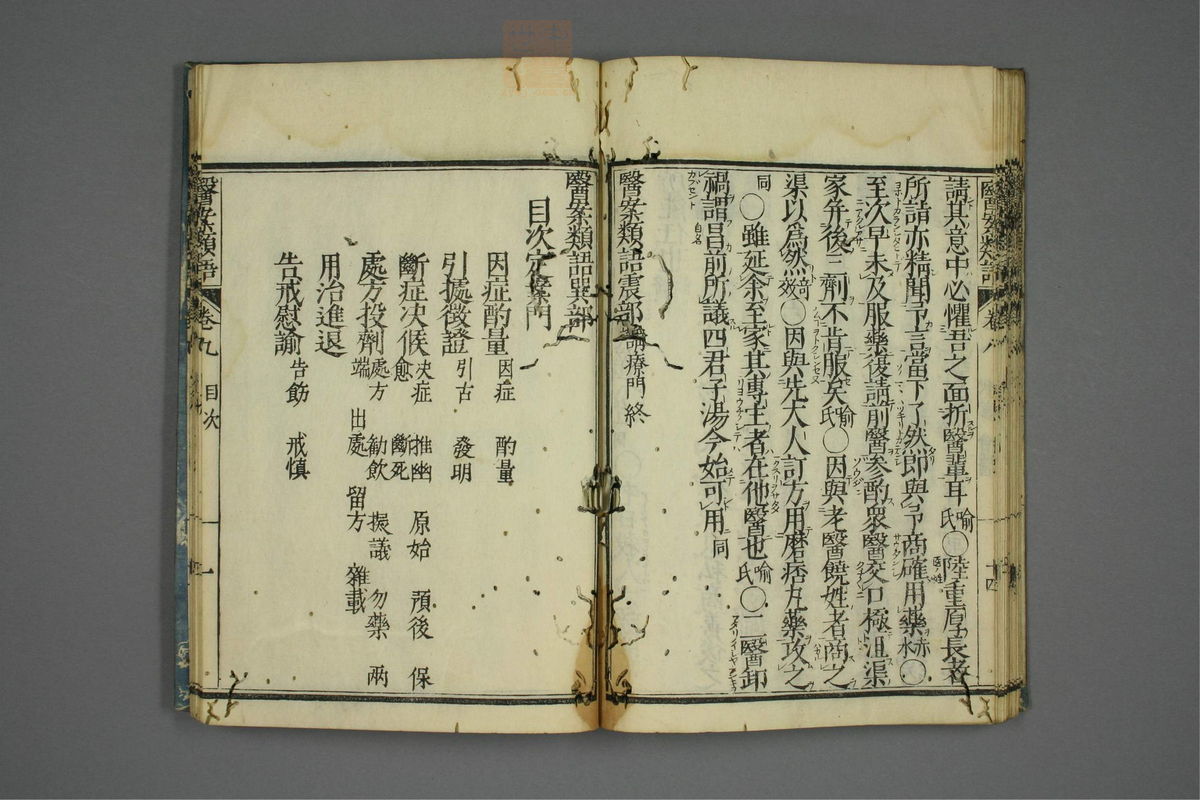 請其意中必懼吾之面折醫輩耳喻氏〇陸重原長者
所請亦精聞予言當下了然即與予商確用藥赤水〇
至次早未及服藥復請前醫參酌眾醫交口極沮渠
家并後二劑不肯服矣喻氏〇因與老醫饒姓者商之
渠以為然奇效〇因與先大人訂方用磨痞丸藥攻之
同〇雖延余至家其專主者在他醫也喻氏〇二醫卸
禍謂昌自名前所議四君子湯今始可用同
醫案類語震部 療門終
醫案類語 卷八 十四
醫案類語巽部
目次定案門
因症酌量 因症 酌量
引據徵證 引古 發明
斷症決候 決症 推幽 原始 預後 保愈 斷死
處方投劑 處方 勸飲 振議 勿藥 兩端 出處 留方 雜載
用治進退
告戒慰諭 告飭 戒慎
醫案類語 卷九 目次 一